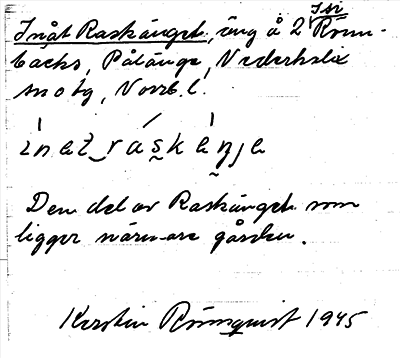 Inåt Raskänget, äng å 2 Rönn-
bäcks, Pålänge, Nederkalix
sn o tg, Norrb. l.
inat raskänje
Den del av Raskänget som
ligger närmare gården.
Kerstin Rönnquist 1945